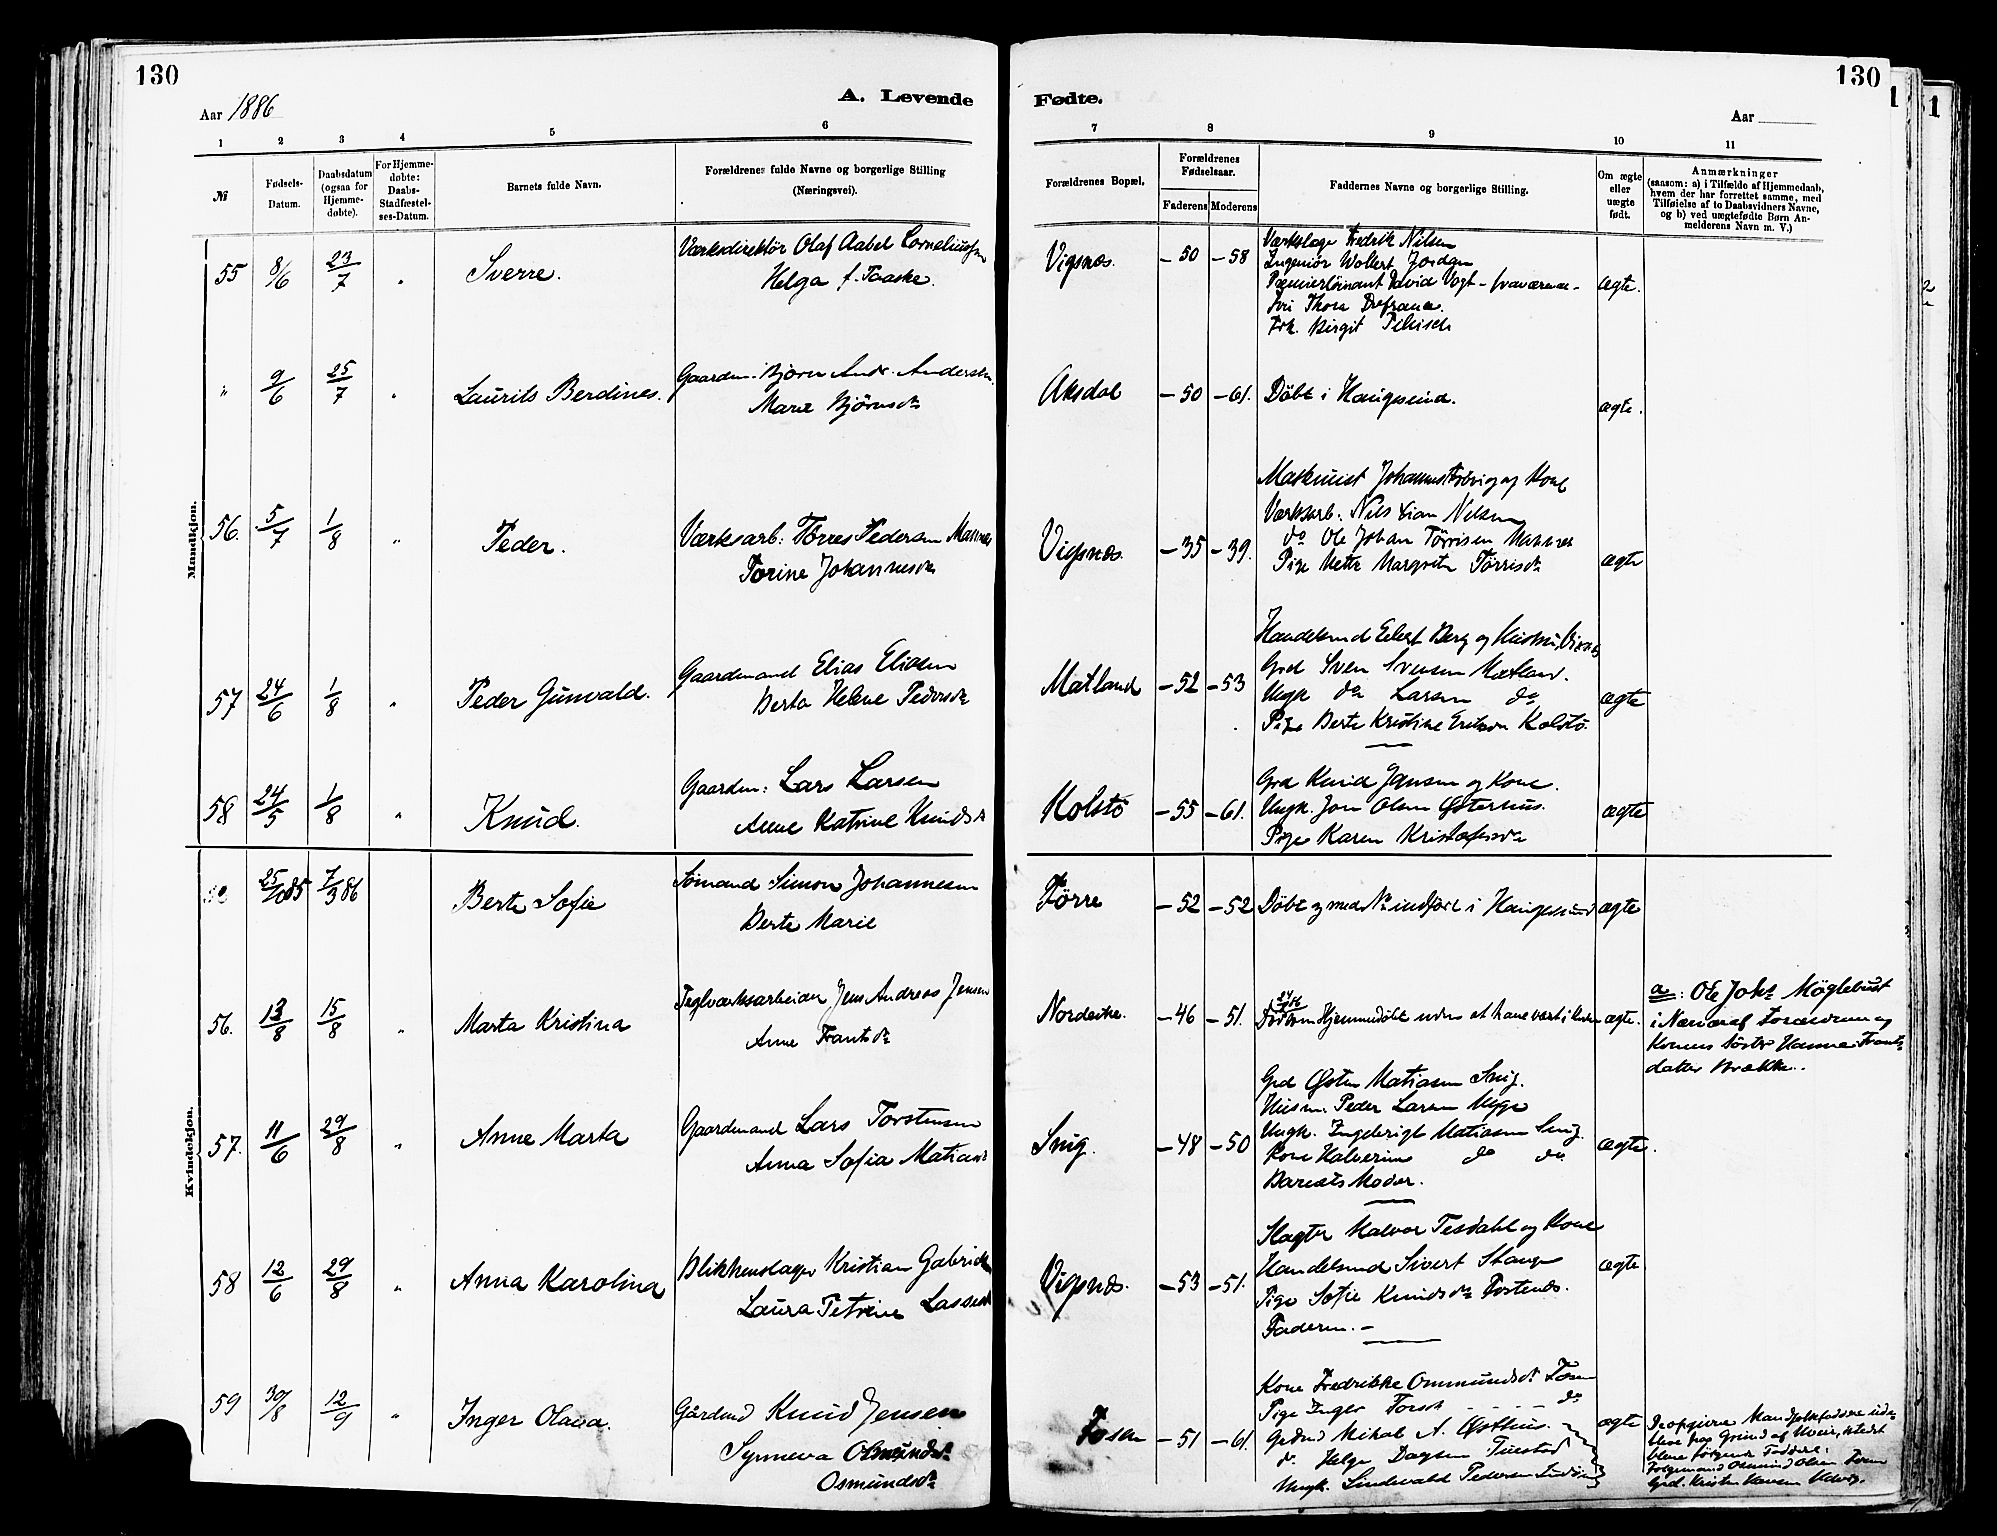 130
130
Aar 1886
A. Levende
Fødte.
Aar
1 2 3 4 5 6 7 8 9 10 11
№
Fødsels-Datum.
Daabsdatum (ogsaa for Hjemme-døbte).
For Hjemme-døbte: Daabs-Stadfæstel-ses-Datum.
Barnets fulde Navn.
Forældrenes fulde Navne og borgerlige Stilling
(Næringsvei).
Forældrenes Bopæl.
Forældrenes Fødselsaar.
Faderens
Moderens
Faddernes Navne og borgerlige Stilling.
Om ægte eller uægte født.
Anmærkninger
(saasom: a) i Tilfælde af Hjemmedaab,
hvem der har forrettet samme, med
Tilføielse af to Daabsvidners Navne,
og b) ved uægtefødte Børn An-
melderens Navn m. V.)
Mandkjøn.
55 8/6 23/7 " Sverre. Værksdirektør Olaf Aabel Corneliussen
Helga f. Faaske.
Vigsnæs. -50 -58
Værkslæge Fredrik Nilsen
Ingeniør Wollert Jordan
Premierløinant David Vogt - fraværende -
Thora
Frk. Birgit
ægte.
" 9/6 25/7 " Laurits Berdines. Gaardm. Bjørn Andr. Andersen
Marie Bjørnsdr
Aksdal -50 -61. Döbt i Haugesund. ægte.
56. 5/7 1/8 " Peder. Værksarb: Törres Pedersen Mannes
Torine Johannesdr
Vigsnæs. -35 -39.
Maskinist Johannes og Kone
Værksarb. Nils Nilsen
do Ole Johan Törrisen Mannes
Pige Mette Margrete Törrisdr
ægte
57 24/6 1/8 " Peder Gunvald. Gaardmand Elias Eliasen
Berta Helene Pedersdr
Matland -52 -53
Handelsmd Berg og
Grd Sven Svensen Mætland.
Ungk do Larsen do
Pige Berte Kristine Kolstö.
ægte
58 24/5 1/8 " Knud. Gaardm: Lars Larsen
Anne Katrine Knudsdr
Kolstö -55 -61.
Grd Knud Jensen og Kone.
Ungk. Jon Olsen Østerhus.
Pige Karen Kristofersdr
ægte
Kvindekjøn.
25/10 85 7/3 86 Berte Sofie Sømand Simon Johannesen
Berte Marie
Førre -52 -52 Döbt og med No indført i Haugesund ægte
56. 13/8 15/8 " Marta Kristina Teglværksarbeider Jens Andreas Jensen
Anne Frantsdr
Nordvike. -46 -51. 24/9 86 Hjemmedøbt uden at have vært i Kirken ægte.
a: Ole Johs Møglebust
i Nærvær af Forældrene og
Konens Søster Hanna Frants-
datter Brække.
57. 11/6 29/8 " Anne Marta Gaardmand Lars Torstensen
Anna Sofia Matiasdr
Snig. -48 -50
Grd Østen Matiasen Snig.
Husm. Peder Larsen
Ungk. Ingebrigt Matiasen Snig.
Kone Halverine do do
Barnets Moder.
ægte.
58 12/6 29/8 " Anna Karolina Blikkenslager Kristian Gabriels
Laura Petrine Lassen
Vigsnæs. -53 -51.
Slagter Halvor Tesdahl og Kone
Handelsmd Sivert Stange
Pige Sofie Knudsdr
Faderen. -
ægte
59 30/8 12/9 " Inger Olava. Gårdmd Knud Jensen
Synneva Osmundsdr
Osmundsdr
Fosen -51 -61.
Kone Fredrikke Ommundsdr Fosen
Pige Inger Fosen do
Grdmd Mikal A. Østhus.
do. Helge Dagsen Tuestad
Ungk. Lindevald Pedersen
ægte
De opgivne Mandfolkfaddere ude-
bleve paa Grund af Uveir, istedet
bleve følgende Faddere:
Osmund Olsen Fosen
Grd. Kristen Hansen